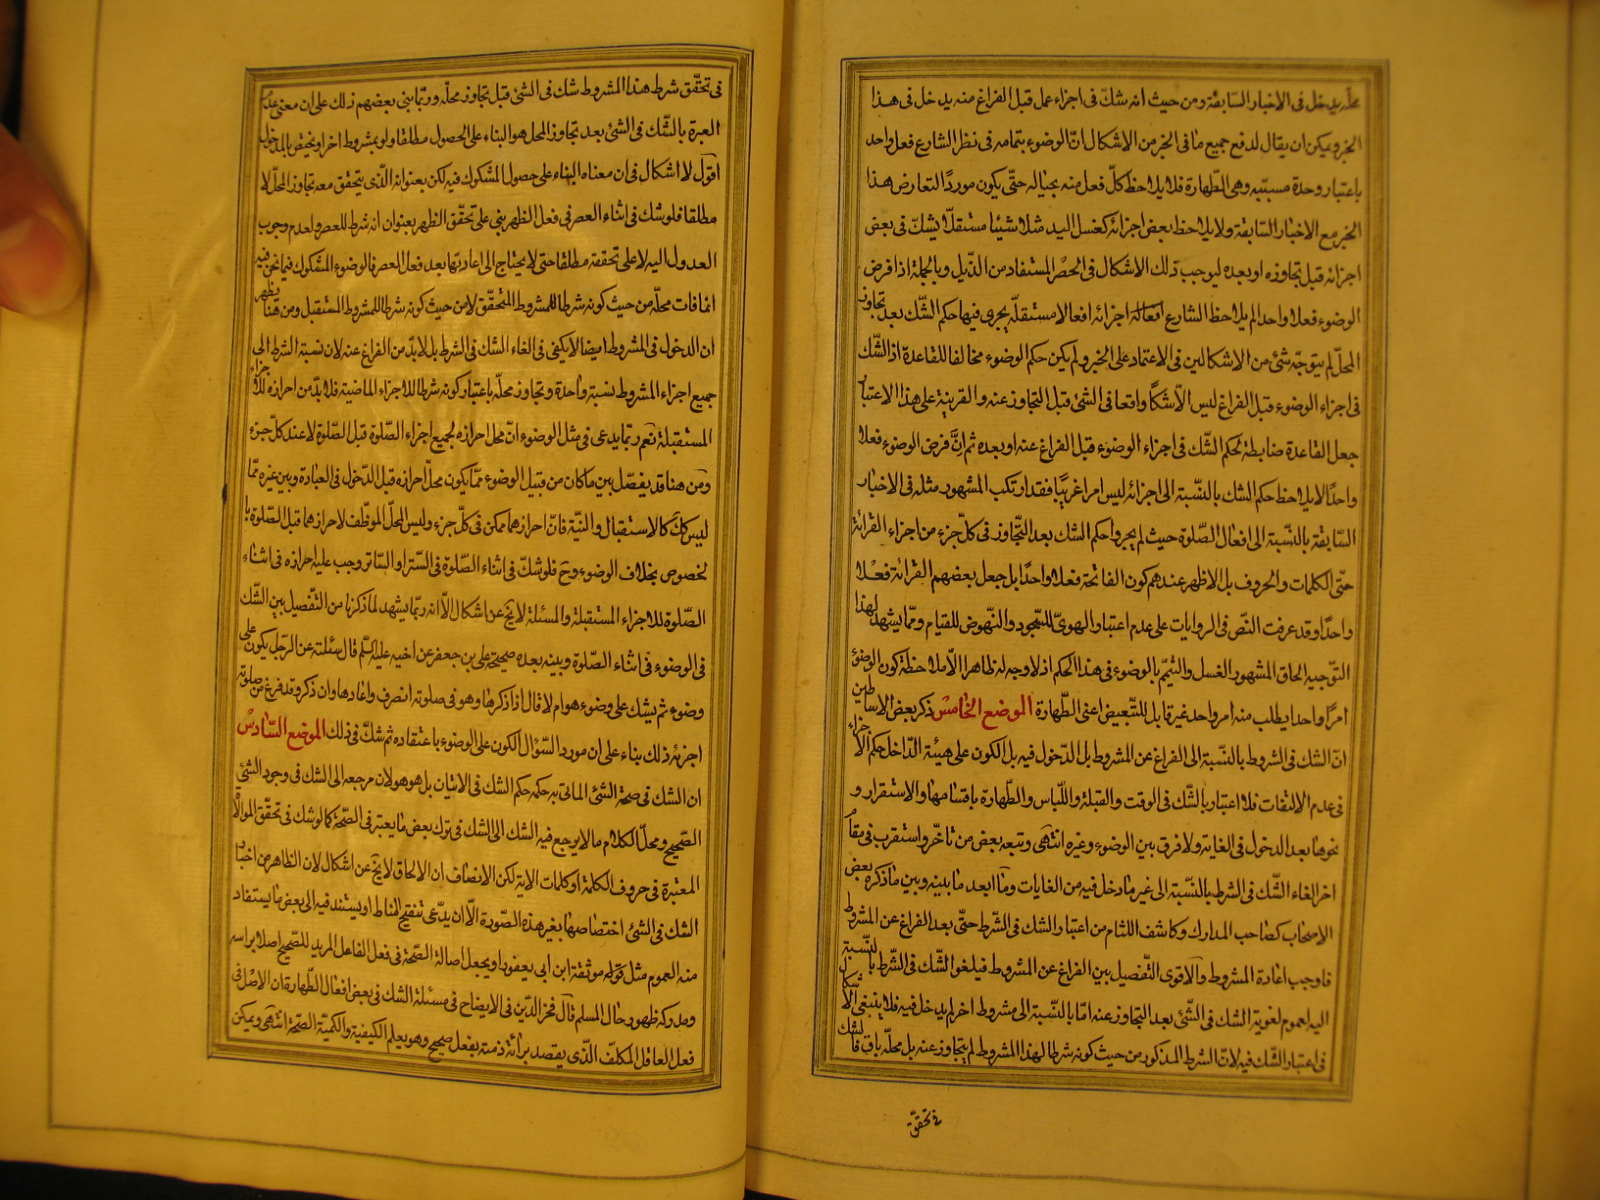 محلّه يدخل فى الاخبار السّابقة ومن حيث انه شكّ فى اجزاء عمل قبل الفراغ منه يدخل فى هذا
الخبر ويمكن ان يقال لدفع جميع ما فى الخبر من الاشكال انّ الوضوء بتمامه فى نظر الشارع فعل واحد
باعتبار وحدة مسبّبه وهى الطّهارة فلا يلاحظ كلّ فعل منه بحياله حتّى يكون موردًا لتعارض هذا
الخبر مع الاخبار السّابقة ولا يلاحظ بعض اجزائه كغسل اليد مثلا شيئا مستقلّا يشكّ فى بعض
اجزائه قبل تجاوزه او بعده ليوجب ذلك الاشكال فى الحصر المستفاد من الذّيل وبالجملة اذا فرض
الوضوء فعلا واحدا لم يلاحظ الشارع اجزائه افعالا مستقلّه يجرى فيها حكم الشّك بعد تجاوز
المحلّ لم يتوجّه شئ من الاشكالين فى الاعتماد على الخبر ولم يكن حكم الوضوء مخالفا للقاعدة اذ الشّك
فى اجزاء الوضوء قبل الفراغ ليس الّا شكًا واقعا فى الشئ قبل التجاوز عنه والقرينة على هذا الاعتبار
جعل القاعدة ضابطة لحكم الشّك فى اجزاء الوضوء قبل الفراغ عنه او بعده ثم انّ فرض الوضوء فعلا
واحدًا لا يلاحظ حكم الشك بالنّسبة الى اجزائه ليس امرا غريبًا فقد ارتكب المشهور مثله فى الاخبار
السّابقة بالنّسبة الى افعال الصّلوة حيث لم يجروا حكم الشك بعد التّجاوز فى كلّ جزء من اجزاء القرائة
حتّى الكلمات والحروف بل الاظهر عندهم كون الفاتحة فعلا واحدًا بل جعل بعضهم القرائة فعلا
واحدًا وقد عرفت النّص فى الروايات على عدم اعتبار الهوىّ للسّجود والنّهوض للقيام وممّا يشهد لهذا
التّوجيه الحاق المشهور الغسل والتيمّم بالوضوء فى هذا الحكم اذ لا وجه له ظاهرا الّا ملاحظة كون الوضوء
امرًا واحدا يطلب منه امر واحد غير قابل للتّبعيض اعنى الطّهارة الموضع الخامس ذكر بعض الاساطين
انّ الشك فى الشروط بالنّسبة الى الفراغ عن المشروط بل الدّخول فيه بل الكون على هيئة الدّاخل حكم الاجزاء
فى عدم الالتفات فلا اعتبار بالشّك فى الوقت والقبلة واللّباس والطّهارة باقسامها والاستقرار و
نحوها بعد الدخول فى الغاية ولا فرق بين الوضوء وغيره انتهى وتبعه بعض من تاخّر واستقرب فى مقام
اخر الغاء الشّك فى الشرط بالنّسبة الى غير ما دخل فيه من الغايات وما ابعد ما بينه وبين ما ذكره بعض
الاصحاب كصاحب المدارك وكاشف اللثام من اعتبار الشك فى الشّرط حتّى بعد الفراغ عن المشروط
فاوجب اعادة المشروط والاقوى التّفصيل بين الفراغ عن المشروط فيلغو الشّك فى الشّرط بالنّسبة
اليه لعموم لغوية الشك فى الشّئ بعد التجاوز عنه امّا بالنّسبة الى مشروط اخر لم يدخل فيه فلا ينبغى الاشكال
فى اعتبار الشّك فيه لانّ الشرط المذكور من حيث كونه شرطا لهذا المشروط لم يتجاوز عنه بل محلّه باق فالشك
فى تحقّق
فى تحقّق شرط هذا المشروط شك فى الشئ قبل تجاوز محلّه وربّما بنى بعضهم ذلك على ان معنى عدم
العبرة بالشّك فى الشئ بعد تجاوز المحل هو البناء على الحصول مطلقا ولو لمشروط اخر او يختص بالمدخول
اقول لا اشكال فى ان معناه البناء على حصول المشكوك فيه لكن بعنوانه الّذى يتحقق معه تجاوز المحلّ لا
مطلقا فلو شك فى اثناء العصر فى فعل الظهر بنى على تحقّق الظهر بعنوان انه شرط للعصر ولعدم وجوب
العدول اليه لا على تحققه مطلقا حتى لا يحتاج الى اعادتها بعد فعل العصر فالوضوء المشكوك فيما نحن فيه
انما فات محلّه من حيث كونه شرطا للمشروط المتحقّق لا من حيث كونه شرطا للمشروط المستقبل ومن هنا يظهر
ان الدخول فى المشروط ايضا لا يكفى فى الغاء الشك فى الشرط بل لا بدّ من الفراغ عنه لان نسبة الشرط الى
جميع اجزاء المشروط نسبة واحدة وتجاوز محلّه باعتبار كونه شرطا للاجزاء الماضية فلا بدّ من احرازه للاجزاء
المستقبلة نعم ربّما يدعى فى مثل الوضوء انّ محل احرازه لجميع اجزاء الصّلوة قبل الصّلوة لا عند كلّ جزء
ومن هنا قد يفصّل بين ما كان من قبيل الوضوء ممّا يكون محلّ احرازه قبل الدّخول فى العبادة وبين غيره ممّا
ليس كك كالاستقبال والنيّة فانّ احرازهما ممكن فى كلّ جزء وليس المحلّ الموظّف لاحرازهما قبل الصّلوة با
لخصوص بخلاف الوضوء وح فلو شكّ فى اثناء الصّلوة فى الستر او السّاتر وجب عليه احرازه فى اثناء
الصّلوة للاجزاء المستقبلة والمسئلة لا يخ عن اشكال الّا انه ربّما يشهد لما ذكرنا من التّفصيل بين الشّك
فى الوضوء فى اثناء الصّلوة وبينه بعده صحيحة على بن جعفر عن اخيه عليه السّلم قال سئلته عن الرّجل يكون على
وضوء ثم يشك على وضوء هو ام لا قال اذا ذكرها وهو فى صلوته انصرف واعادها وان ذكر وقد فرغ من صلوته
اجزئه ذلك بناء على ان مورد السّؤال الكون على الوضوء باعتقاده ثم شكّ فى ذلك الموضع السّادس
ان الشك فى صحة الشئ الماتى به حكمه حكم الشك فى الاتيان بل هو هو لان مرجعه الى الشك فى وجود الشئ
الصّحيح ومحلّ الكلام ما لا يرجع فيه الشك الى الشك فى ترك بعض ما يعتبر فى الصّحة كما لو شك فى تحقّق الموالاة
المعتبرة فى حروف الكلمة او كلمات الاية لكن الانصاف ان الالحاق لا يخ عن اشكال لان الظاهر من اخبار
الشك فى الشئ اختصاصها بغير هذه الصّورة الّا ان يدّعى تنقيح المناط او يستند فيه الى بعض ما يستفاد
منه العموم مثل قوله موثقة ابن ابى يعفور او يجعل اصالة الصّحة فى فعل الفاعل المريد للصّحيح اصلا براسه
ومدركه ظهور حال المسلم قال فخر الدّين فى الايضاح فى مسئلة الشك فى بعض افعال الطّهارة ان الاصل فى
فعل العاقل المكلّف الّذى يقصد برائة ذمته بفعل صحيح وهو يعلم الكيفية والكميّة الصّحة انتهى ويمكن